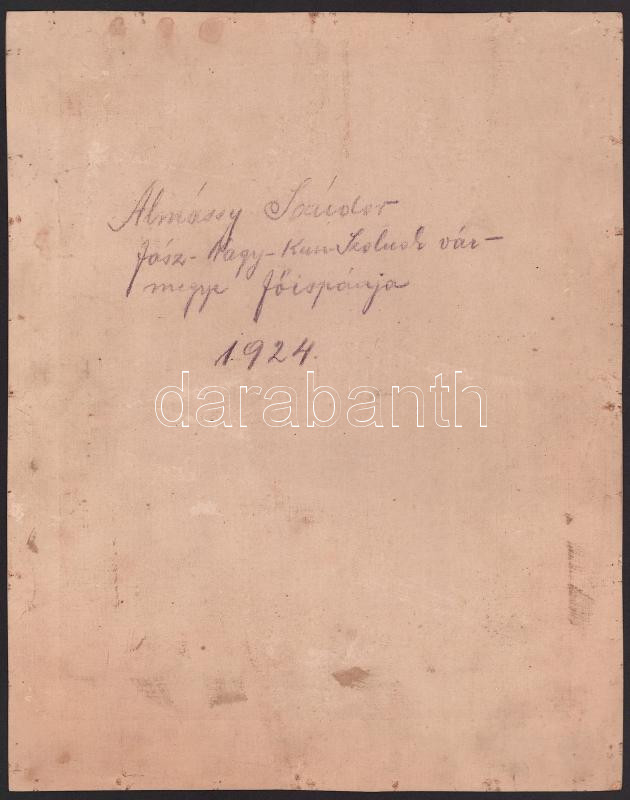 Almássy Sándor
Jász-Nagy-Kun-Szolnok vár-
megye főispánja
1924.
darabanth